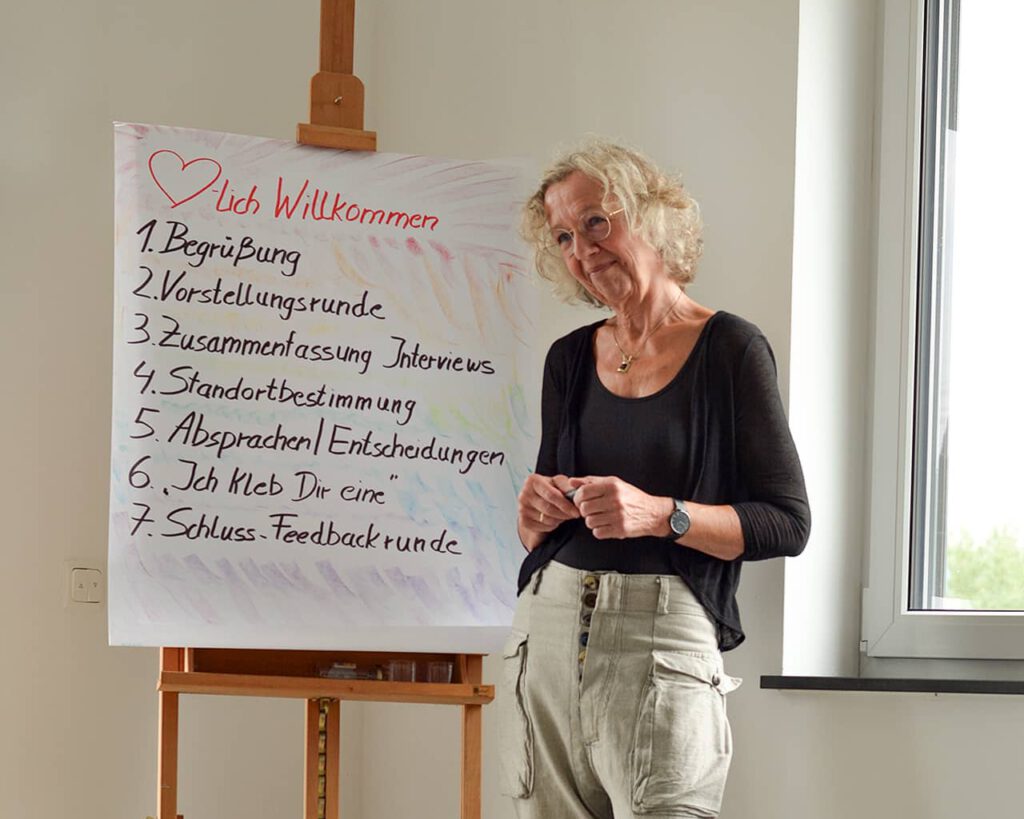 ♡-lich Willkommen
1. Begrüßung
2. Vorstellungsrunde
3. Zusammenfassung Interviews
4. Standortbestimmung
5. Absprachen/Entscheidungen
6. „Ich Kleb Dir eine"
7. Schluss-Feedbackrunde